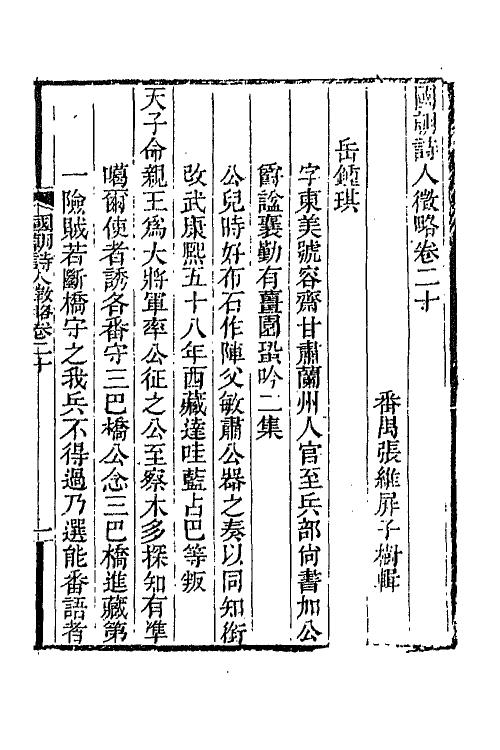 國朝詩人徵略卷二十
番禺張維屏子樹輯
岳鍾琪
字東美號容齋甘肅蘭州人官至兵部尚書加公
爵諡襄勤有薑園蛩吟二集
公兒時好布石作陣父敏肅公器之奏以同知銜
改武康熙五十八年西藏達哇藍占巴等叛
天子命親王爲大將軍率公征之公至察木多探知有準
噶爾使者誘各番守三巴橋公念三巴橋進藏第
一險賊若斷橋守之我兵不得過乃選能番語者
國朝詩人徵略卷二十
一